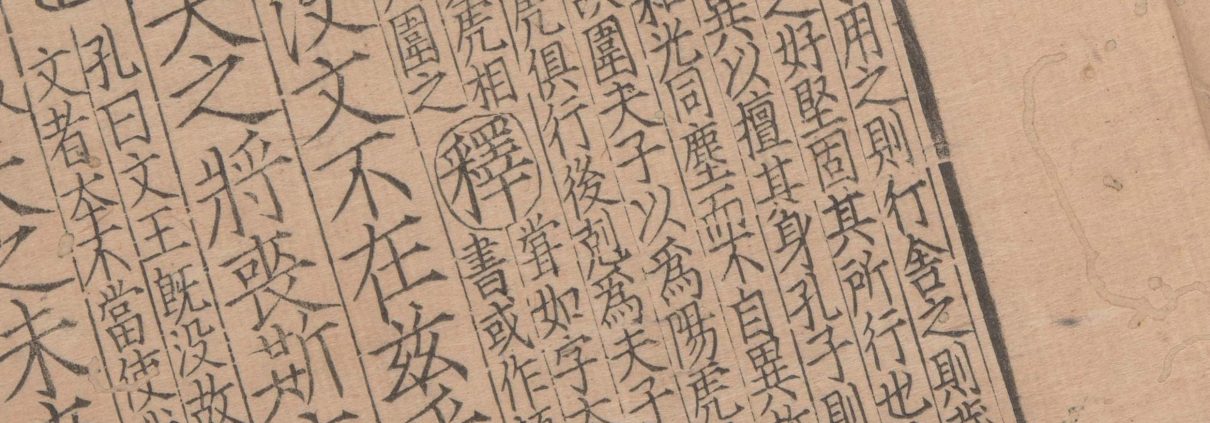 用之則行舍之則
之好堅固其所行也
異以擅其身孔子則
和光同塵而不自異
圍夫子以為陽虎
虎俱行後剋為夫子
虎相
圍之
釋
嘗如字
書或作
没文不在茲乎
天之將喪斯
孔曰文王既没故
文者夲未當使
之未